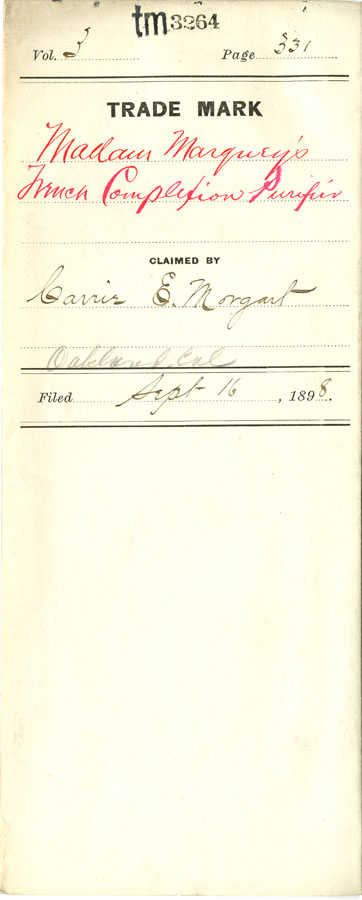 tm 3264
Vol. 3 Page 331
TRADE MARK
Madam Marquey's
French Complexion Purifier
CLAIMED BY
Carrie E. Morgart
Oakland Cal
Filed Sept 16, 1898.